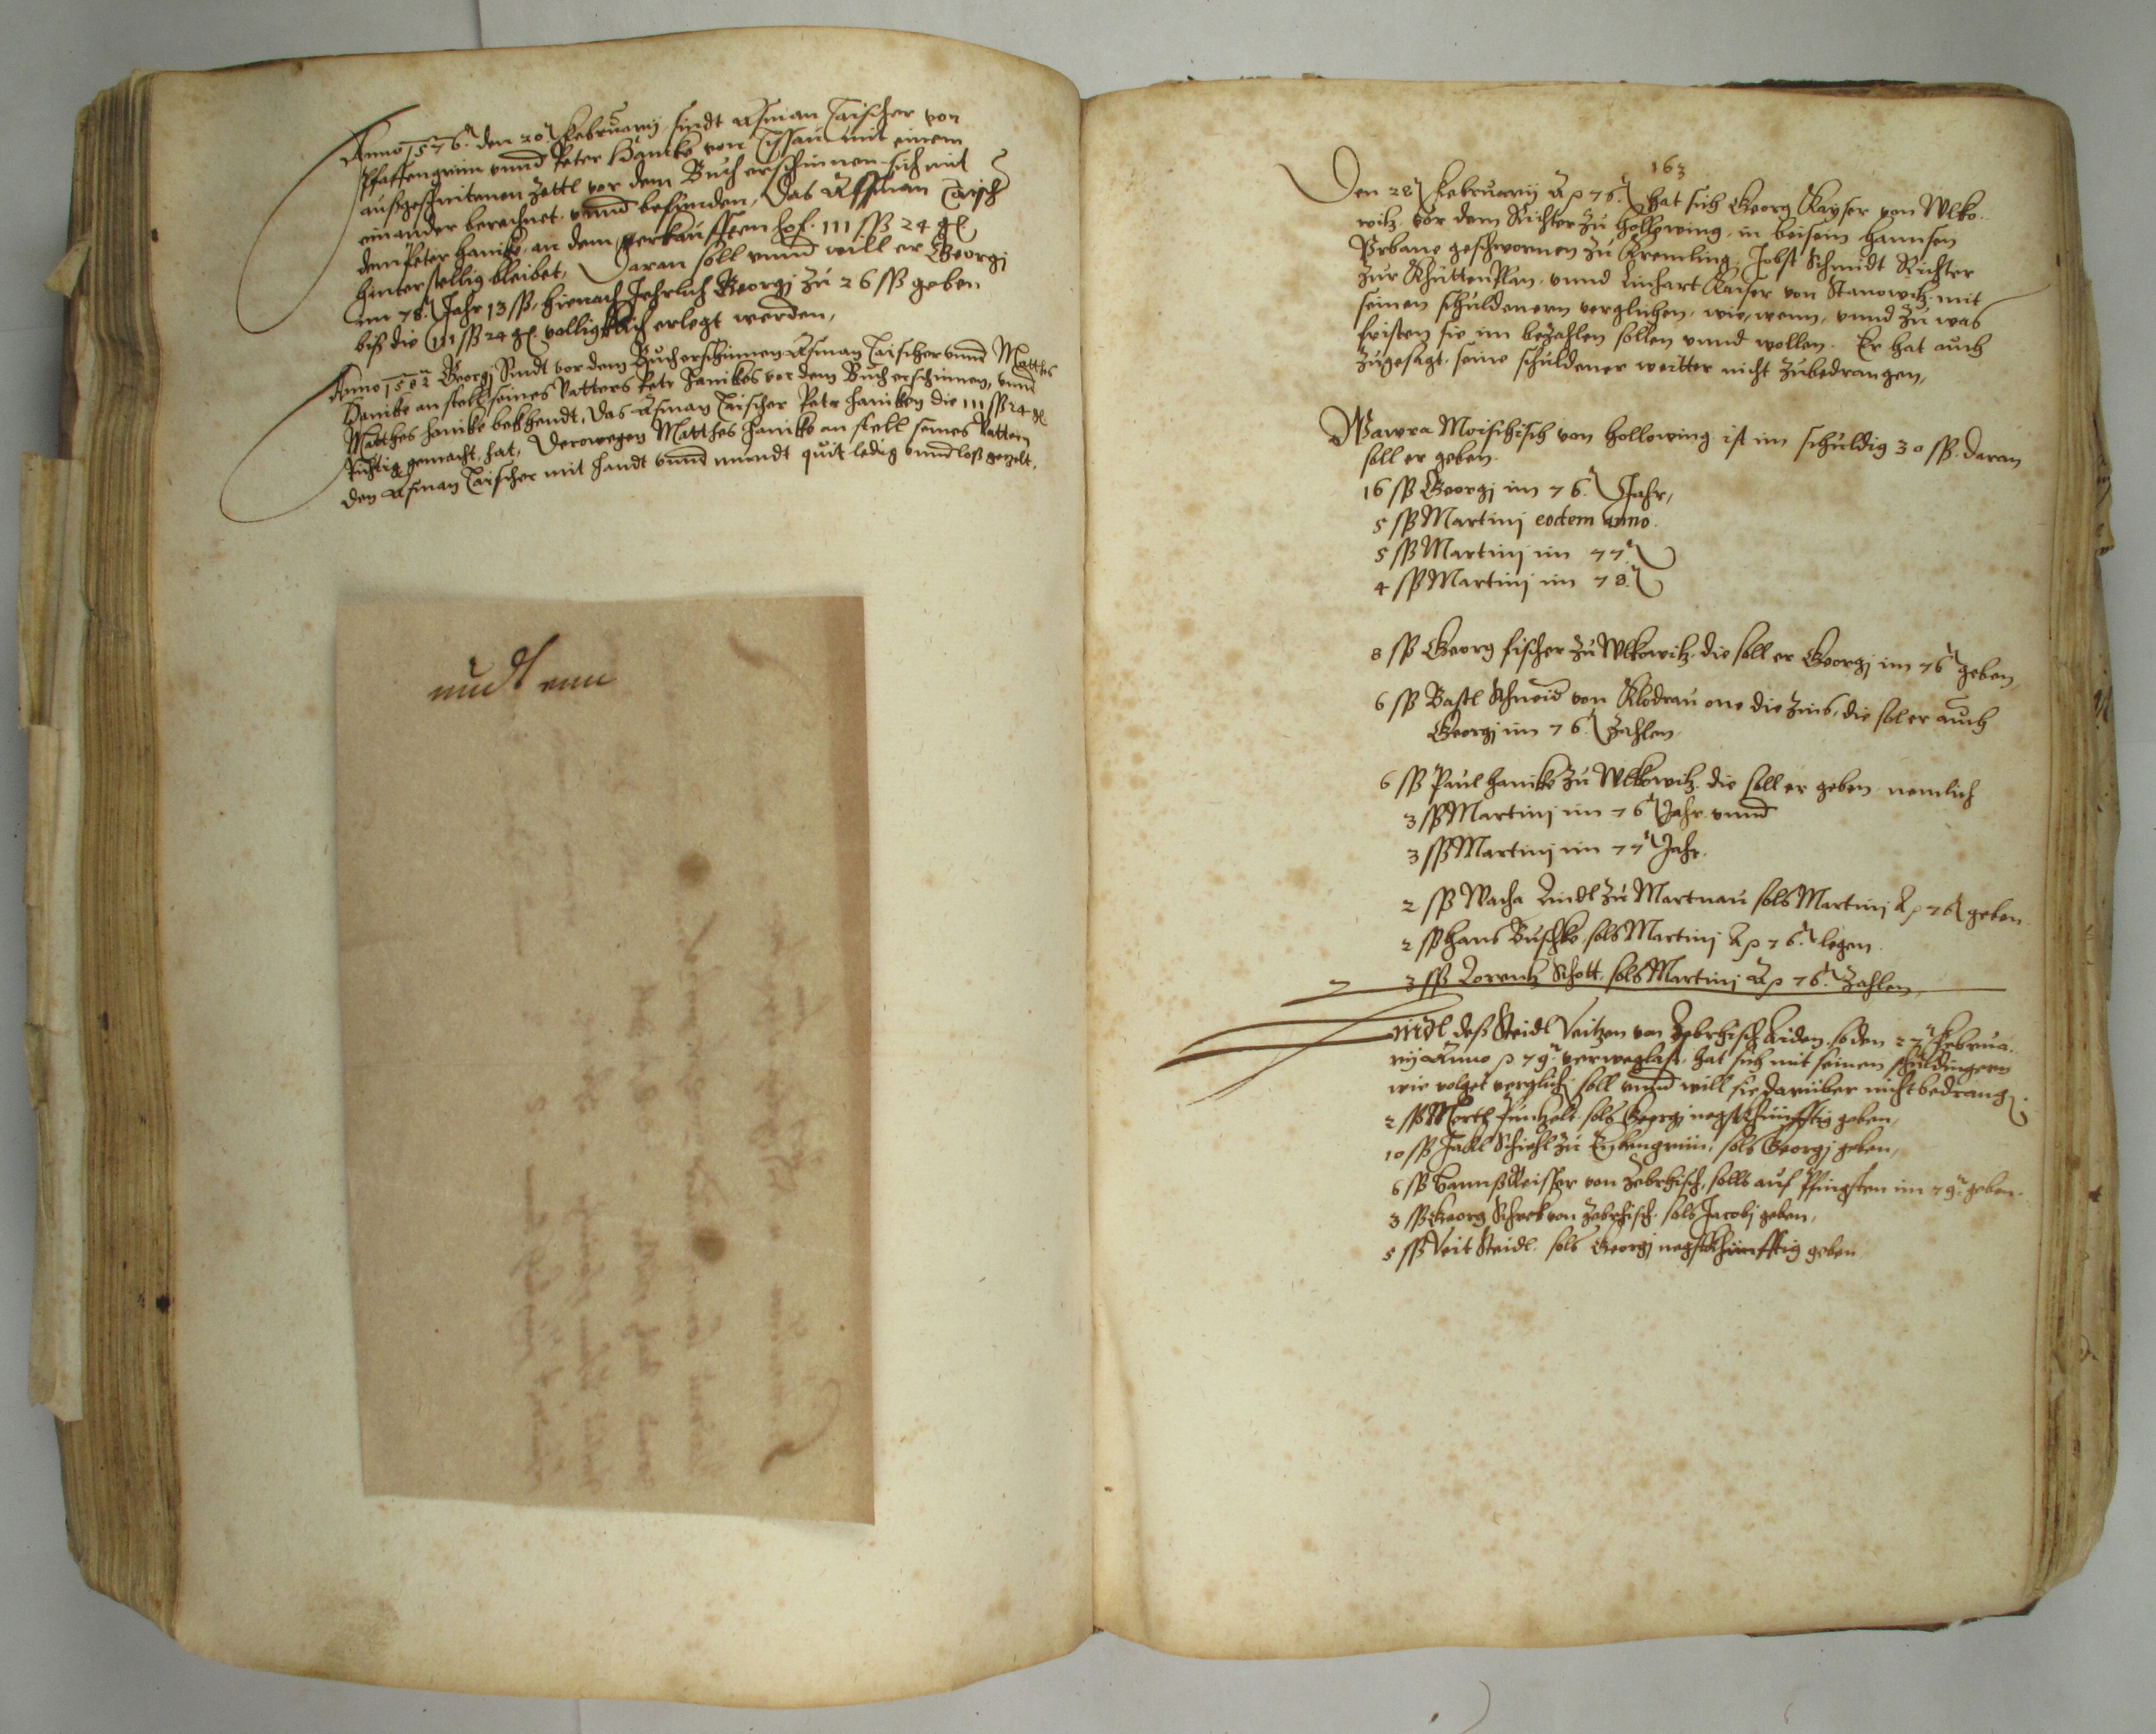 Anno 1576. den 20 Februarij sindt Aßman Tischer von
Pfaffengrün vnnd Peter Hanike von Tissau mit einem
außgeschnitenen Zettl vor dem Buch erschinnen sich mit
einander berechnet, vnnd befunden, Das Aßman Tisch
dem Peter Hanike, an dem verkaufftem hof. 111 ßß 24 gl
hinterstellig bleibet, Daran soll vnnd will er Georgj
im 78. Jahr 13 ßß, hienach Jehrlich Georgj zu 26 ßß geben
biß die 111 ßß 24 gl völligklich erlegt werden,
Anno 1582 Georgj Sindt vor dem Buch erschinnen Aßman Tischer vnnd Matthes
Hanike an stell seines Vatters Petr Hanikes vor dem Buch erschinnen, vnnd
Matthes Hanike bekhendt, Das Aßman Tischer Petr Haniken die 111 ßß 24 gl
richtig gemacht hat, Derowegen Matthes Hanike an stell seines Vattern
den Aßman Tischer mit handt vnnd mundt quit ledig vnnd loß gezelt.
163
Den 28 Februarij A p 76. hat sich Georg Kayser von Wlko-
witz, vor dem Richter zu Hollowing, in beisein Hannsen
Vrbane geschwornen zu Kremling, Jobst Schmidt Richter
zur Khuttenplan, vnnd Linhart Kaiser von Stanowitz mit
seinen schuldenern verglichen, wie, wenn, vnnd zu was
fristen sie im bezahlen sollen vnnd wollen. Er hat auch
zugesagt, seine schuldener weitter nicht zubedrangen,
Wawra Moischisch von Hollowing ist im schuldig 30 ßß. daran
soll er geben.
16 ßß Georgj im 76. Jahr,
5 ßß Martinj eodem anno.
5 ßß Martinj im 77
4 ßß Martinj im 78.
8 ßß Georg Fischer zu Wlkowitz, die soll er Georgj im 76 geben,
6 ßß Bastl Schneid von Klodrau one die Zins, die sol er auch
Georgj im 76. Zahlen.
6 ßß Paul Hanike zu Wlkowitz. die soll er geben nemlich
3 ßß Martinj im 76 Jahr vnnd
3 ßß Martinj im 77 Jahr.
2 ßß Wacha Lindl zu Martnau sols Martinj A p 76 geben.
2 ßß Hans Buschke, sols Martinj A p 76. legen.
3 ßß Lorentz Schott, sols Martinj A p 76. Zahlen,
deß Steidl Veitzen von Zebrhisch Aiden, so den 27 Februa-
rij Anno p 79. hat sich mit seinen schuldigern
wie volget verglich, soll vnnd will sie darüber nicht bedrang.
2 ßß sols Georgj negstkhünfftig geben,
10 ßß Jakl Schiehl zu sols Georgj geben,
6 ßß Hannß Reisser von Zebrhisch, solls auf Pfingsten im 79. geben.
3 ßß Georg Schrek von Zebrhisch sols Jacobj geben,
5 ßß Veit Steidl. sols Georgj negstkhünfftig geben